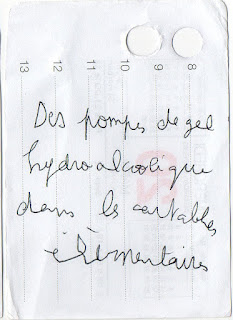 8
9
10
11
12
13
Des pompes de gel
hydroalcoolique
dans les cartables
élémentaires